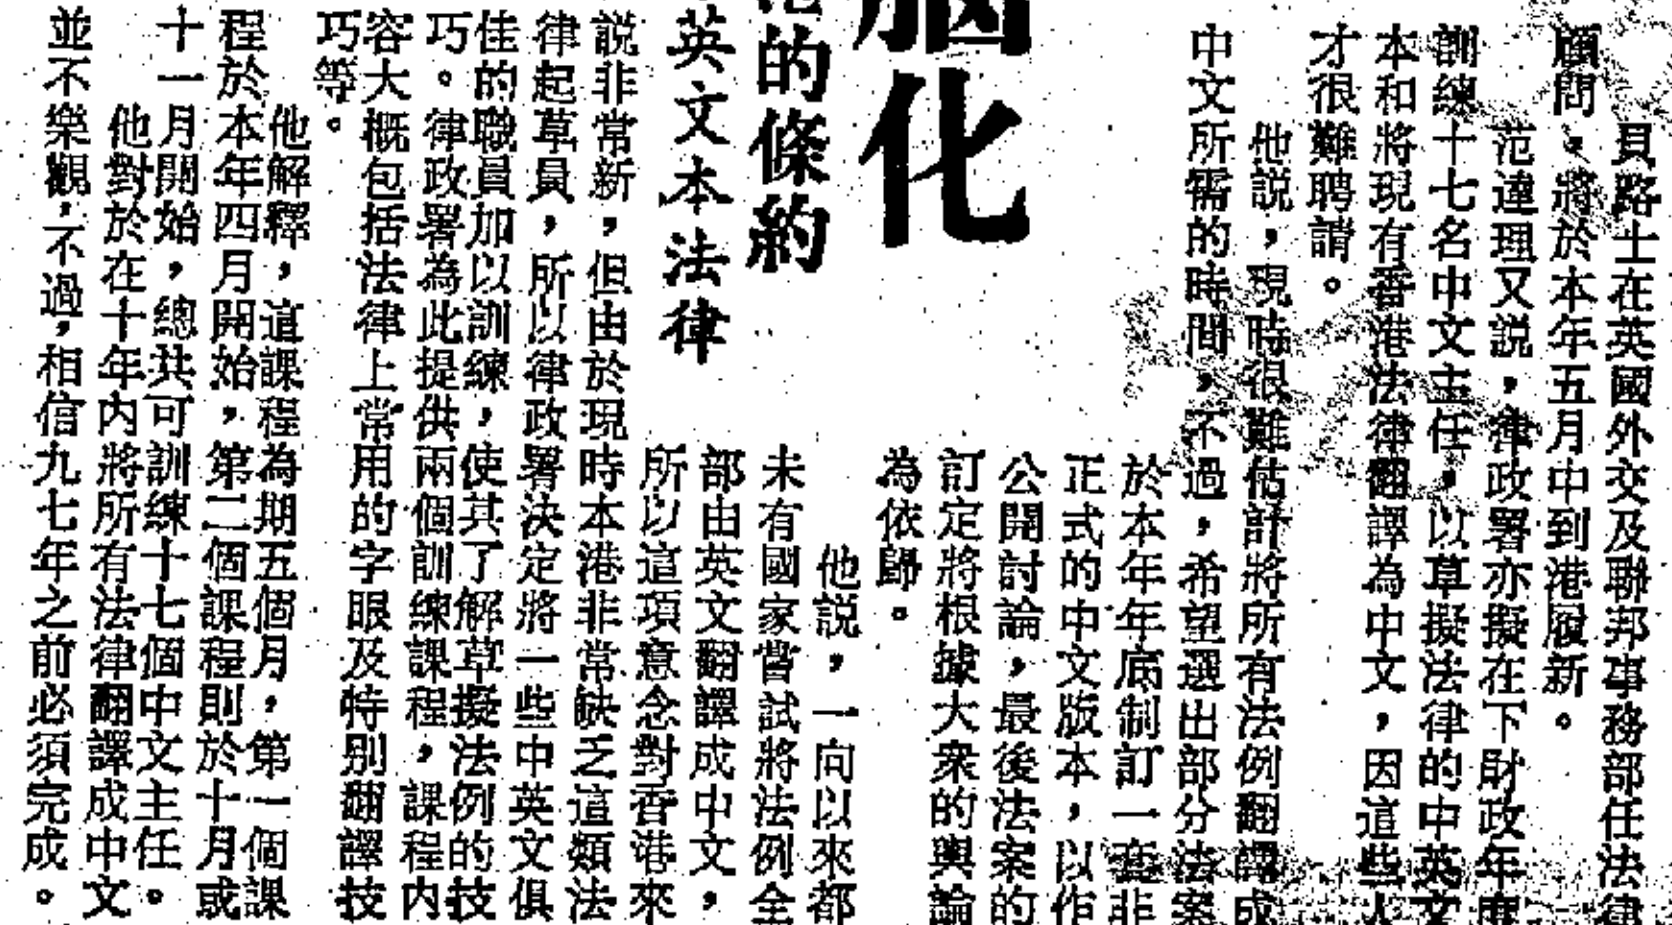 貝路士在英國外交及聯邦事務部任法律
顧問,將於本年五月中到港履新。
范達理又説,律政署亦擬在下財政年度
訓練十七名中文主任,以草擬法律的中英文
本和將現有香港法律翻譯為中文,因這些人
才很難聘請。
他説,現時很難估計將所有法例翻譯成
中文所需的時間,不過,希望選出部分法案
於本年年底制訂一套非
正式的中文版本,以作
公開討論,最後法案的
訂定將根據大衆的輿論
為依歸。
腦化
港的條約
英文本法律
他説,一向以來都
未有國家嘗試將法例全
部由英文翻譯成中文,
所以這項意念對香港來
説非常新,但由於現時本港非常缺乏這類法
律起草員,所以律政署決定將一些中英文俱
佳的職員加以訓練,使其了解草擬法例的技
巧。律政署為此提供兩個訓練課程,課程內
容大概包括法律上常用的字眼及特別翻譯技
巧等。
他解釋,這課程為期五個月,第一個課
程於本年四月開始,第二個課程則於十月或
十一月開始,總共可訓練十七個中文主任。
他對於在十年內將所有法律翻譯成中文
並不樂觀,不過,相信九七年之前必須完成。